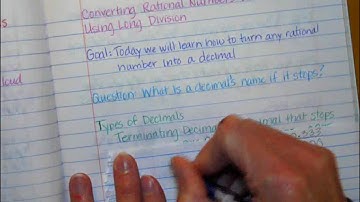 Converting Rational Numbers
Using Long Division
Goal: Today we will learn how to turn any rational
number into a decimal
Question: What is a decimal's name if it stops?
Types of Decimals
Terminating Decimal that stops
loud